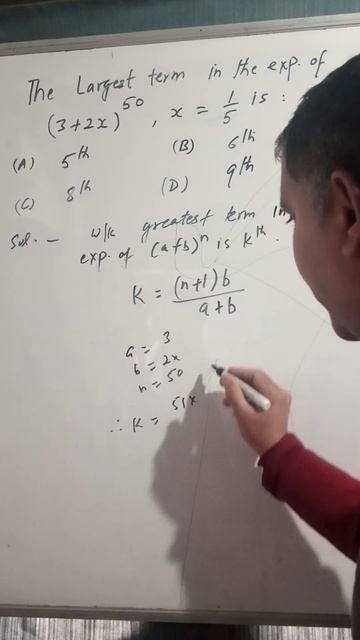 The Largest term in the exp. of
(3+2x)^50, x = 1/5 is :
(A) 5th (B) 6th
(C) 8th (D) 9th
Sol. - w/k greatest term in
exp. of (a+b)^n is Kth.
K = (n+1)b / a+b
a = 3
b = 2x
n = 50
∴ K = 51x